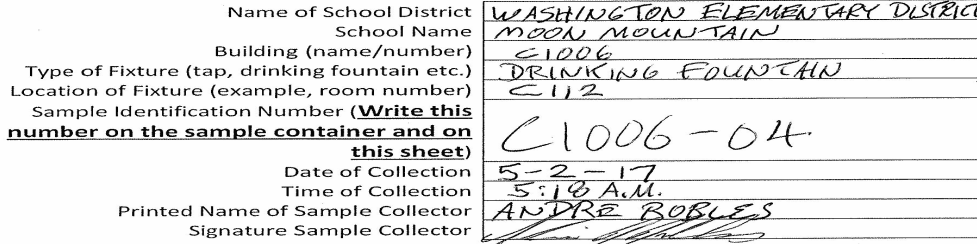 Name of School District WASHINGTON ELEMENTARY DISTRICT
School Name MOON MOUNTAIN
Building (name/number) C1006
Type of Fixture (tap, drinking fountain etc.) DRINKING FOUNTAIN
Location of Fixture (example, room number) C112
Sample Identification Number (Write this
number on the sample container and on
this sheet) C1006-04
Date of Collection 5-2-17
Time of Collection 5:18 A.M.
Printed Name of Sample Collector ANDRE ROBLES
Signature Sample Collector